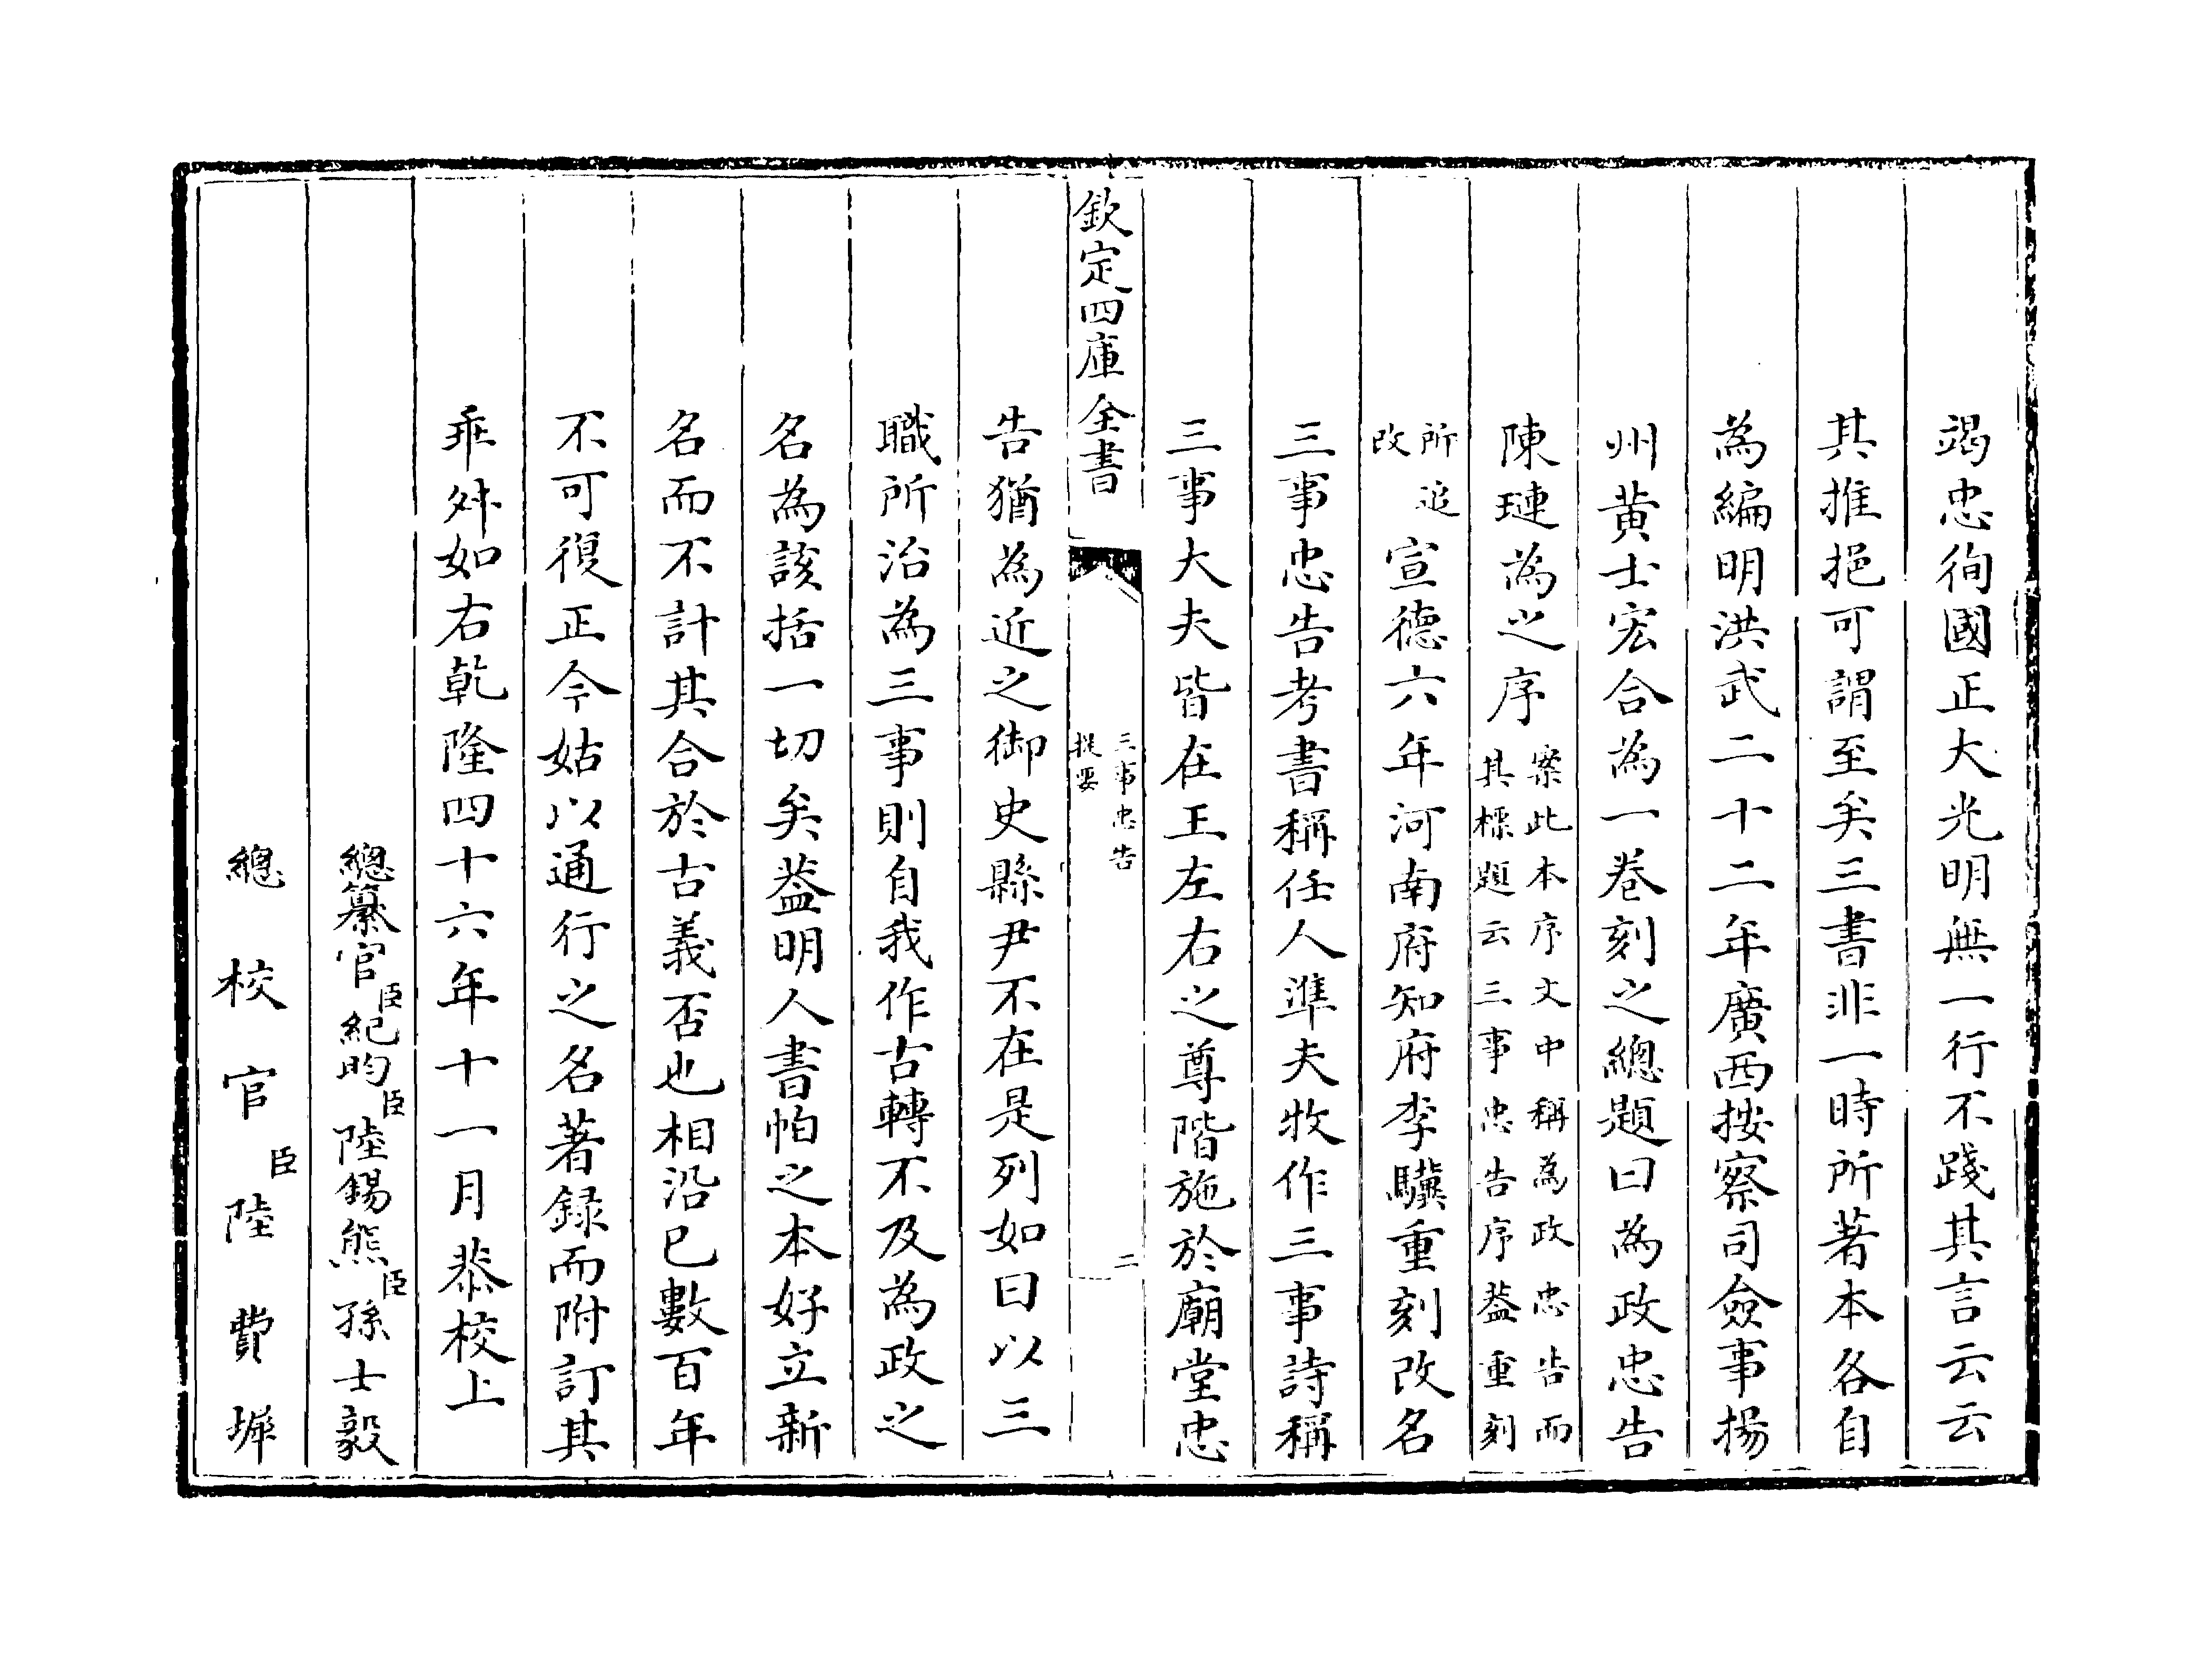 竭忠徇國正大光明無一行不踐其言云云
其推挹可謂至矣三書非一時所著本各自
為編明洪武二十二年廣西按察司僉事揚
州黄士宏合為一卷刻之總題曰為政忠告
陳璉為之序案此本序文中稱為政忠告而其標題云三事忠告序葢重刻
所追改宣德六年河南府知府李驥重刻改名
三事忠告考書稱任人準夫牧作三事詩稱
三事大夫皆在王左右之尊階施於廟堂忠
欽定四庫全書
三事忠告
提要
二
告猶為近之御史縣尹不在是列如曰以三
職所治為三事則自我作古轉不及為政之
名為該括一切矣葢明人書帕之本好立新
名而不計其合於古義否也相沿已數百年
不可復正今姑以通行之名著録而附訂其
乖舛如右乾隆四十六年十一月恭校上
總纂官臣紀昀臣陸錫熊臣孫士毅
總校官臣陸費墀